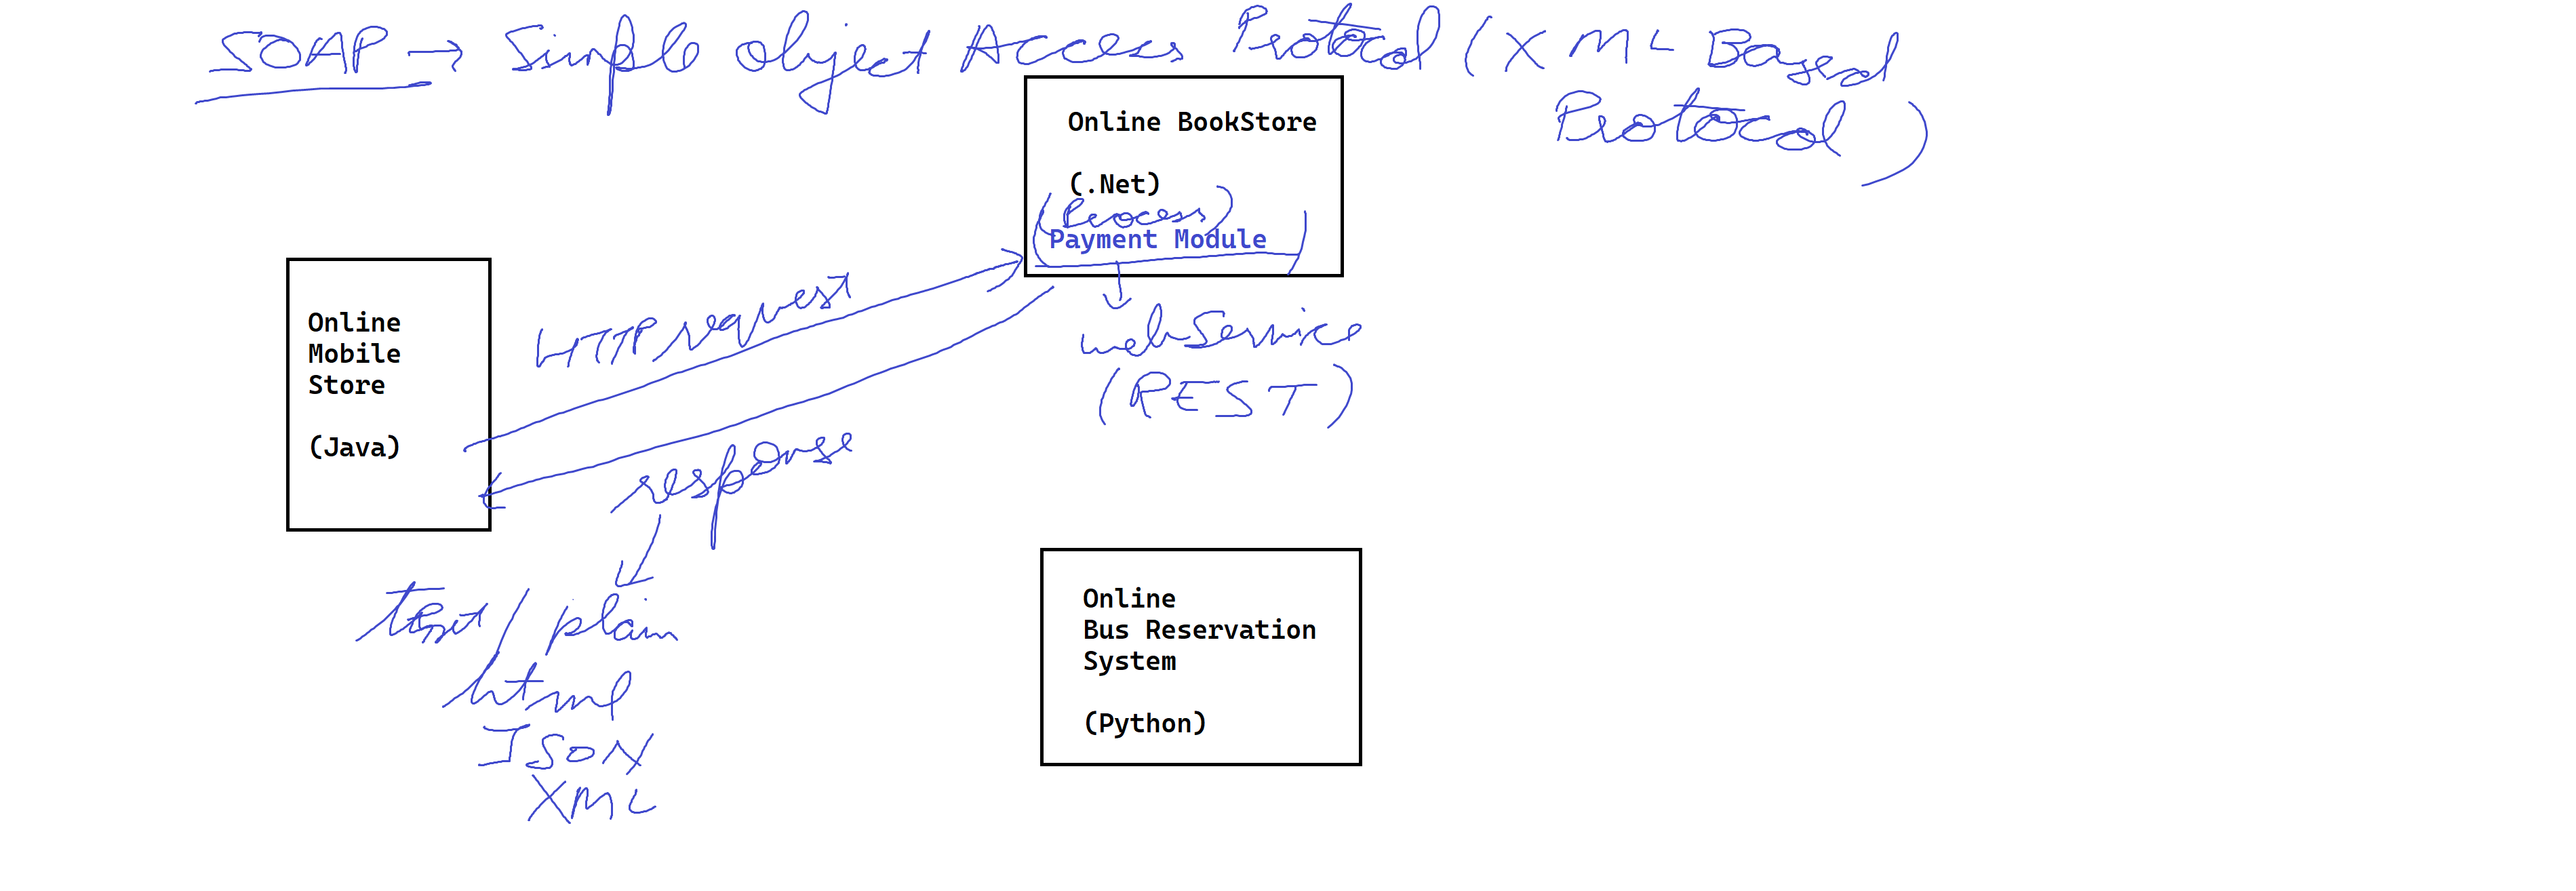 SOAP → Simple Object Access Protocol (XML Based
Protocol)
Online BookStore
(.Net)
(Process)
Payment Module
webService
(REST)
HTTP request
Online
Mobile
Store
(Java)
response
text/plain
html
JSON
XML
Online
Bus Reservation
System
(Python)